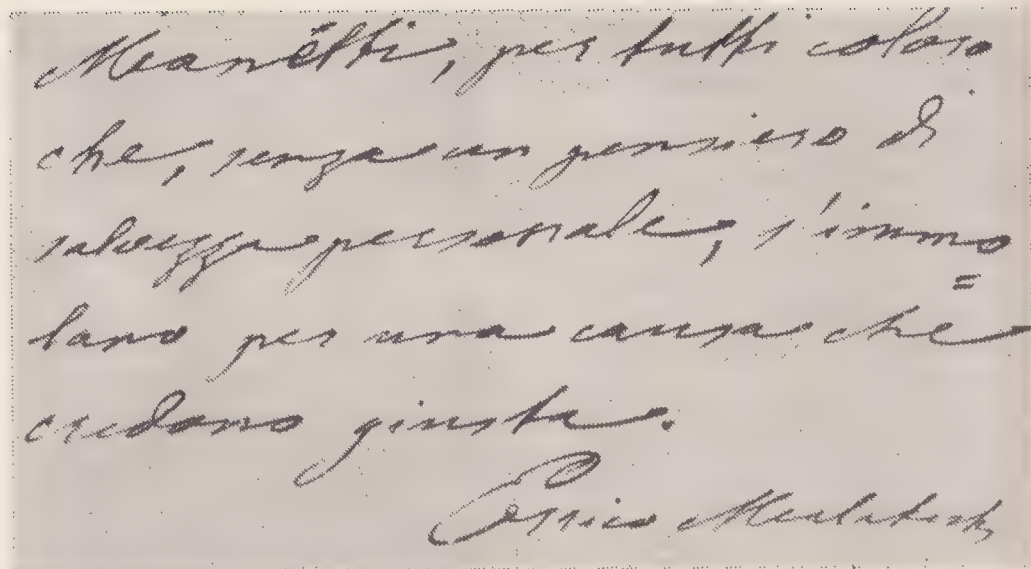 per tutti coloro
che, senza un pensiero di
salvezza personale, s'immo=
lano per una causa che
credono giusta.
Errico Malatesta